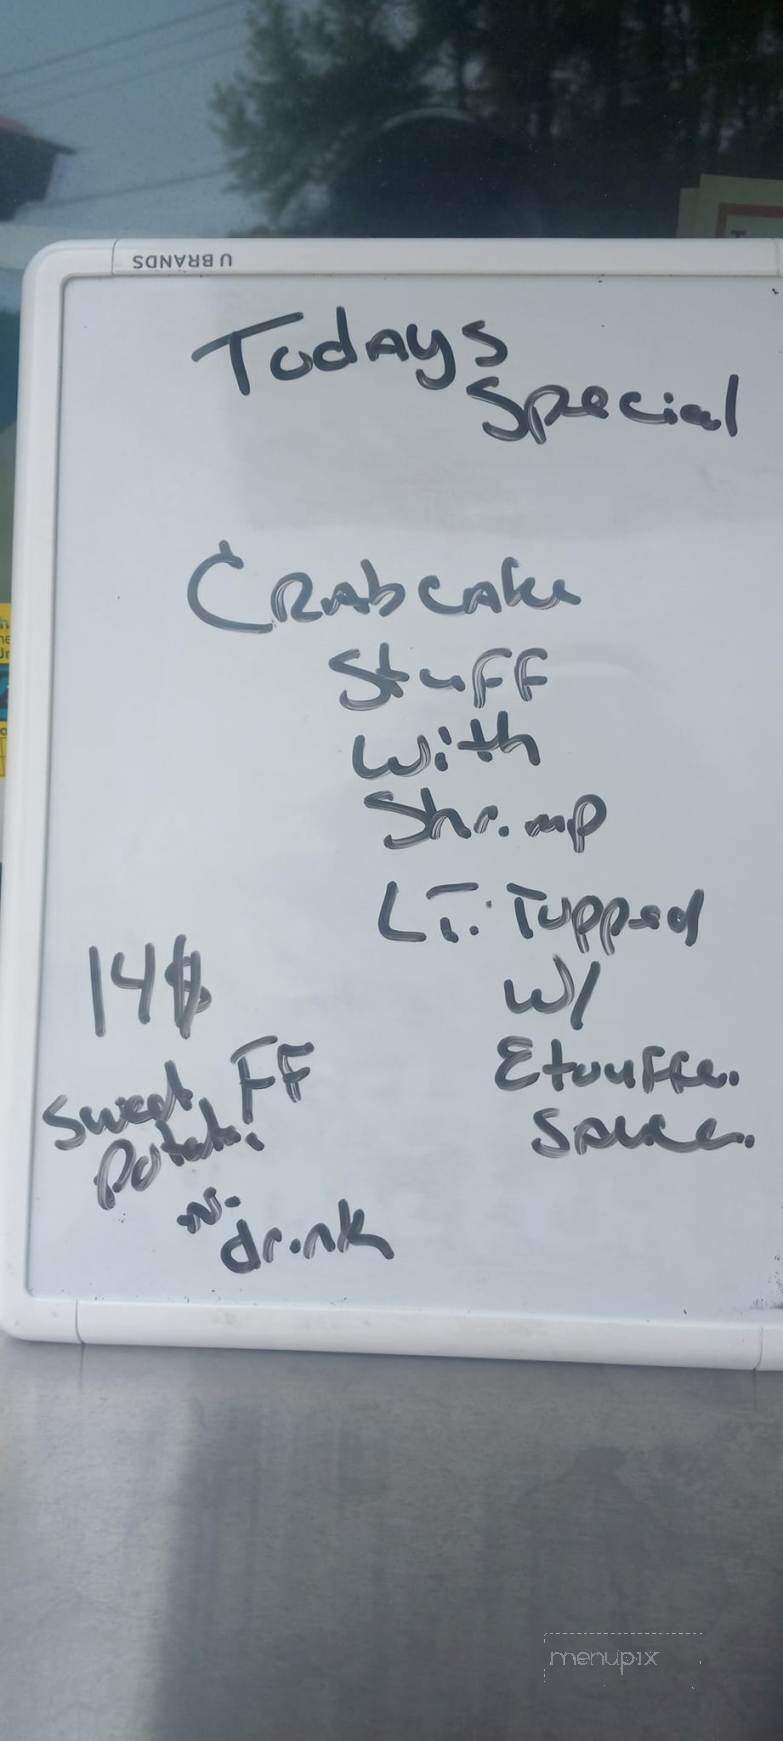 U BRANDS
Todays
Special
Crabcake
Stuff
With
Shrimp
LT. Topped
W/
Etouffee
Sauce
14$
Sweet FF
Potato
N
drink
menupix